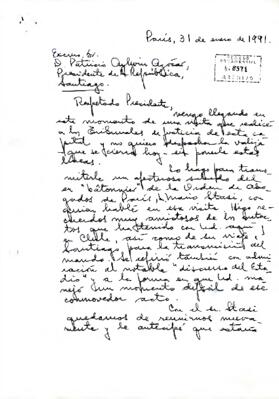 París, 31 de enero de 1991.
Excmo. Sr.
D. Patricio Aylwin Azócar,
Presidente de la República,
Santiago.
ARCHIVO
Respetado Presidente,
vengo llegando en
este momento de una visita que realicé
a los Tribunales de Justicia de esta ca-
pital y no quiero despachar la valija
que se cierra hoy sin ponerle estas
líneas.
Lo hago para trans-
mitirle un afectuoso saludo del
ex "bâtonnier" de la Orden de Abo-
gados de París, Mario Stasi, con
quien hablé en esa visita. Hizo re-
cuerdos muy amistosos de los contac-
tos que ha tenido con Ud. aquí y
en Chile, así como de su viaje a
Santiago para la transmisión del
mando. Se refirió también con admi-
ración al notable "discurso del Esta-
dio" y a la forma en que Ud. ma-
nejó un momento difícil de ese
conmovedor acto.
Con el Sr. Stasi
quedamos de reunirnos nueva-
mente y le anticipé que